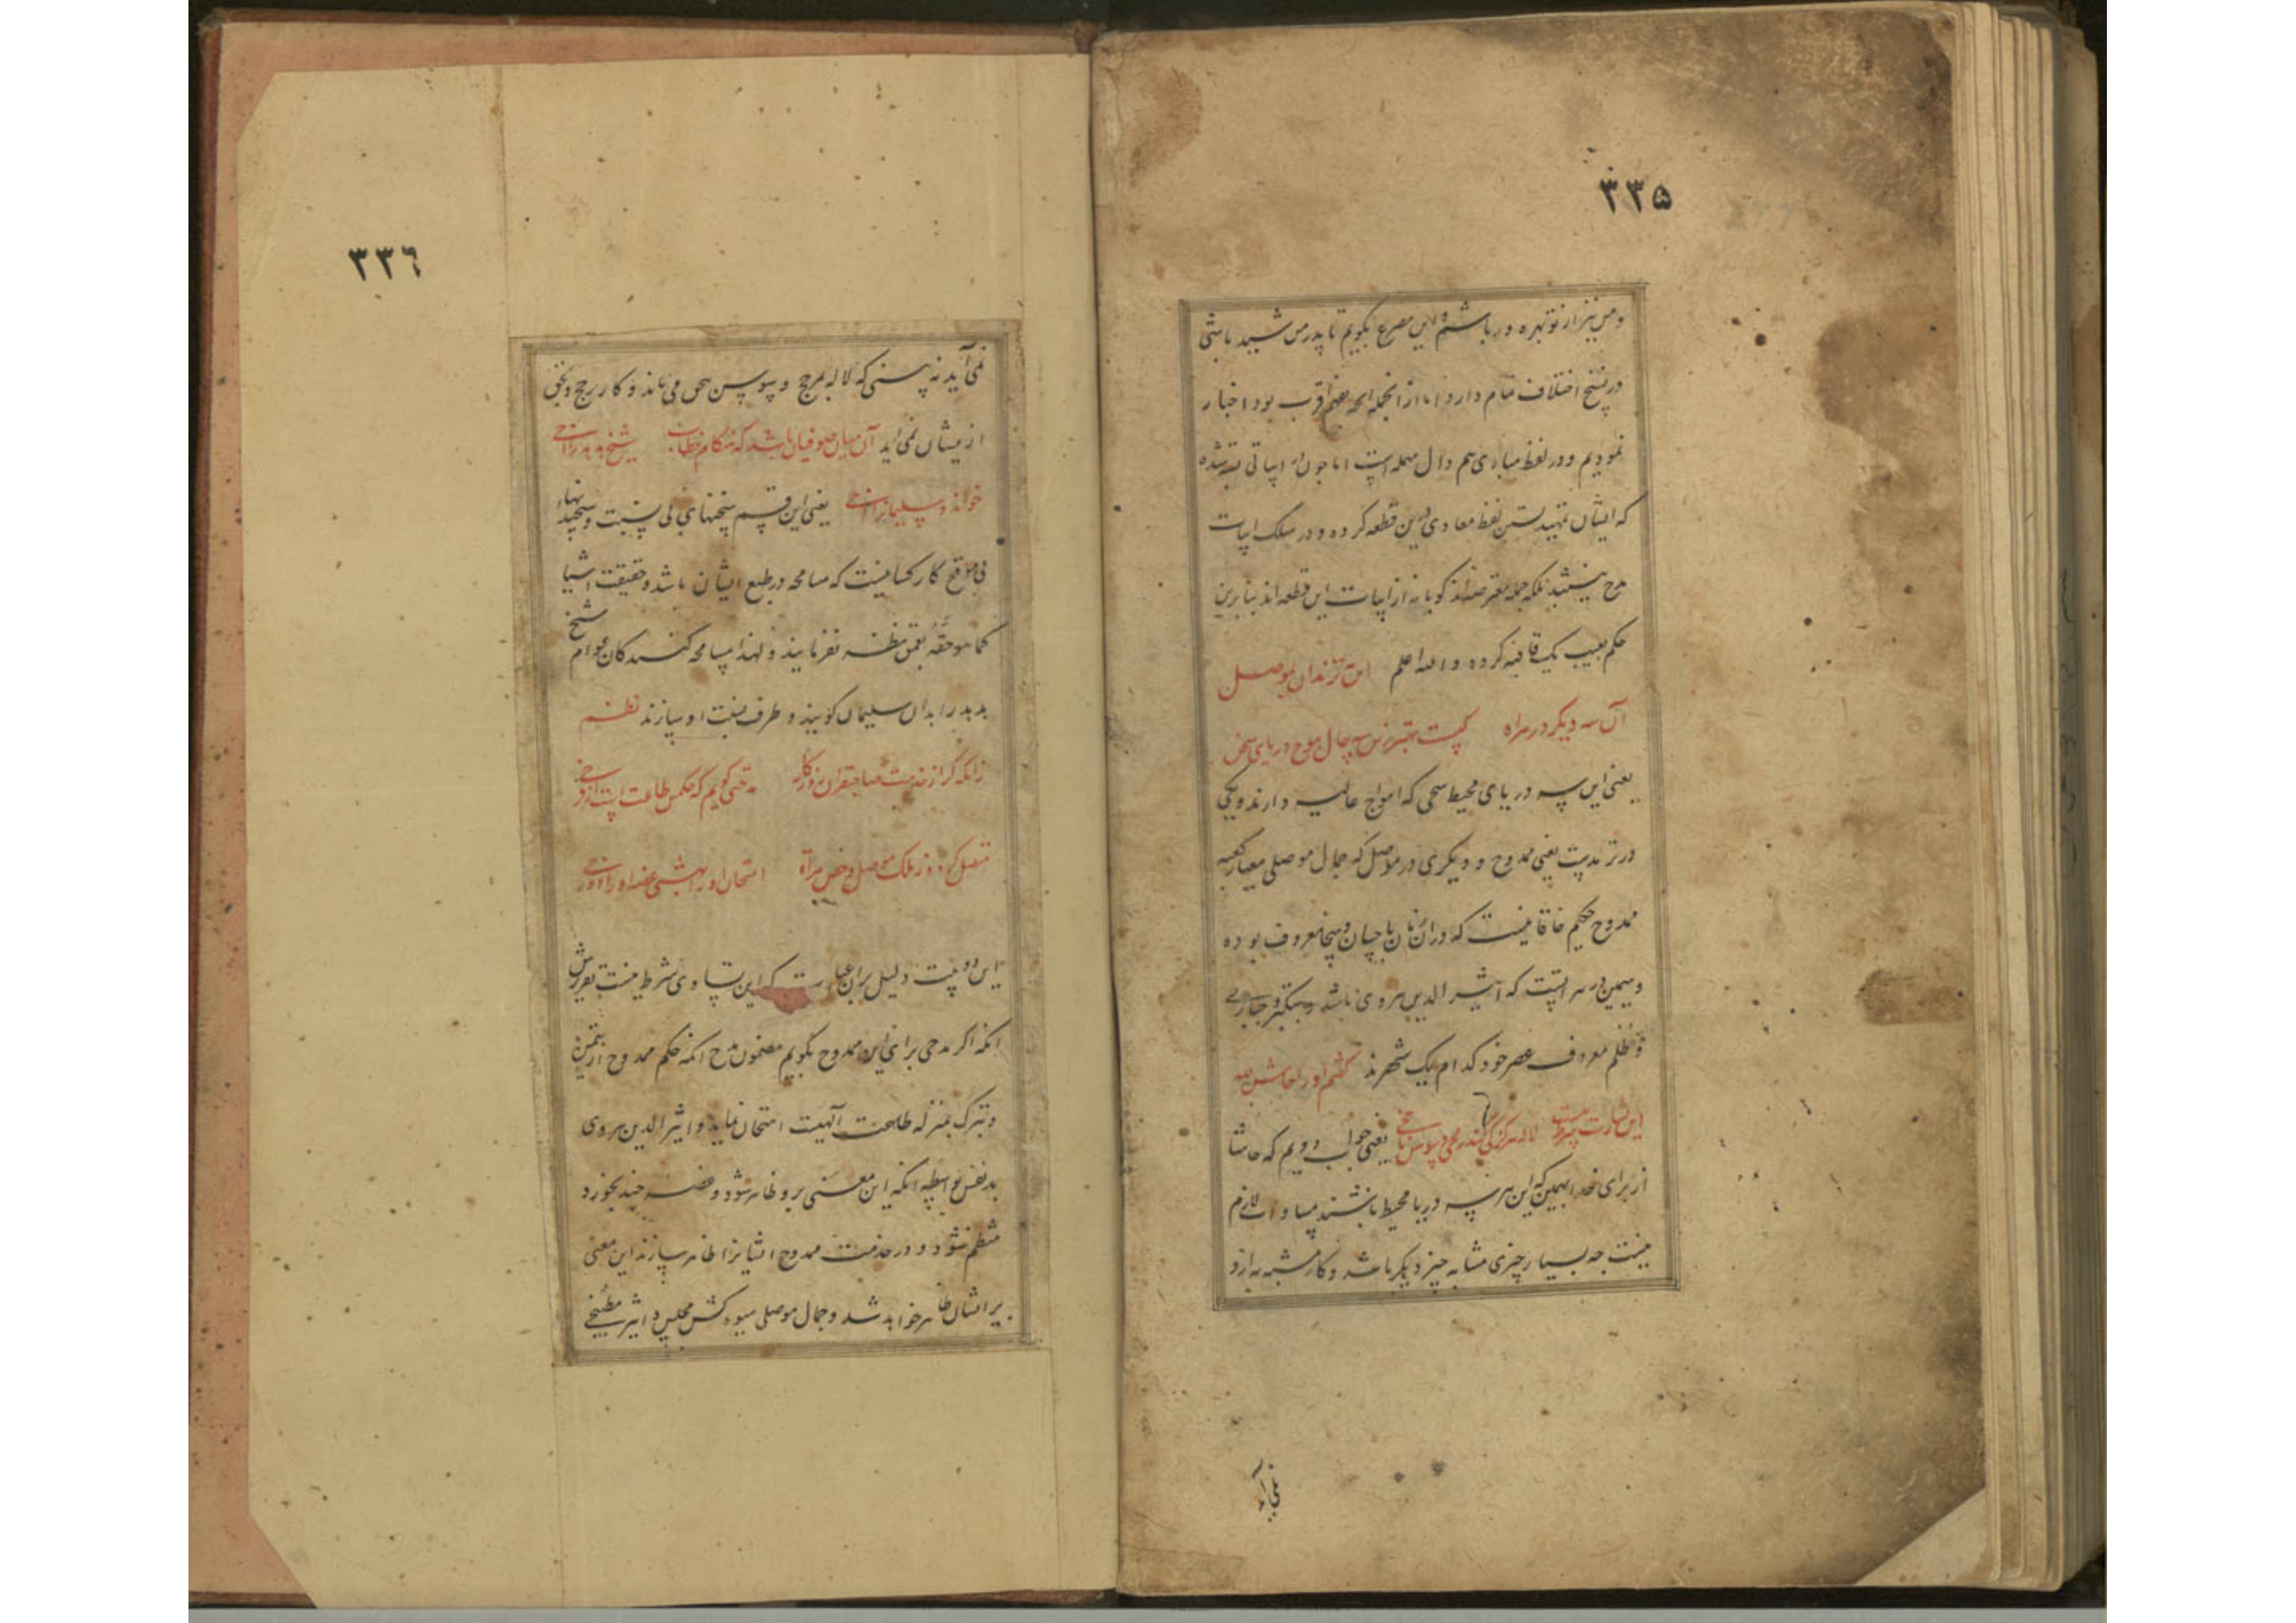 ۳۳۵
و من نیز از تو بهره ور باشم و این مصرع بگویم تا پدرمن شبید باشی
در نسخ اختلاف تمام دارد اما از انجمله انچه بفهم اقرب بود اخبار
نمودیم و در لفظ مبادی هم دال مهمله است اما چون در ابیاتی بسته شده
که ایشان تمهید لفظ معادی درین قطعه کرده و در سلک ابیات
مدح نیستند بلکه جمله معترضه اند گویا نه از ابیات این قطعه اند بنابرین
حکم بعیب یک قافیه کرده والله اعلم این ترندان بموصل
آن سه دیگر در هراه کیست بهتر زین سه چال موج دریای سخن
یعنی این سه دریای محیط سخی که امواج عالیه دارند و یکی
در ترمدیت یعنی ممدوح و دیگری در موصل که جمال موصلی معمار کعبه
ممدوح حکیم خاقانیست که در ان زمان باحسان و سخا معروف بوده
و سیمین در هراتست که اثیر الدین هروی باشد و بتکبر و جباری
و ظلم معروف عصر خود کدام یک بهترند گفتم او را حاش لله
این شارت شرط نیست لاله کی کند یعنی جواب دویم که حاشا
از برای خدا همین که این هر سه دریا محیط باشند مساوات لازم
نیست چه بسیار چیزی مشابه چیز دیگر باشد و کار مشبه به ازو
نمی آید
۳۳٦
نمی آید نه بینی که لاله بمرج و سوسن بحق می ماند و کار مرج و بحق
از یشان نمی اید آن میان صوفیان باشد که هنگام خطاب شیخ هدهد را
خواند و سلیمان را یعنی این قسم سخنهای بی نسبت و سنجیدنهاء
بی موقع کار کسانیست که مسامحه در طبع ایشان باشد و حقیقت اشیا
کما هو حقه بعمق نظر نفرمایند و لهذا مسامحه کنندگان عوام شیخ
هدهد را بدان سلیمان گویند و طرف نسبت او سازند نظم
زانکه گر از خدمت صاحبقران روزگار مدحتی گویم که حکمش طاعت است
متصل گردد ز ملک موصل و خص هراة امتحان او را
این دو بیت دلیل بران عبارت که این تساوی شرط نیست تقریرش
انکه اگر مدحی برای این ممدوح بگویم مضمون مدح انکه حکم ممدوح از
و تبرک بمنزله طاعت آلهیت امتحان نماید و اثیر الدین هروی
بد نفس بواسطه انکه این معنی برو ظاهر شود و غصه چند بخورد
منظم شود و در خدمت ممدوح ایشانرا ظاهر سازند این معنی
بر ایشان ظاهر خواهد شد و جمال موصلی میوه کش مجلس و اثیر مطبخی